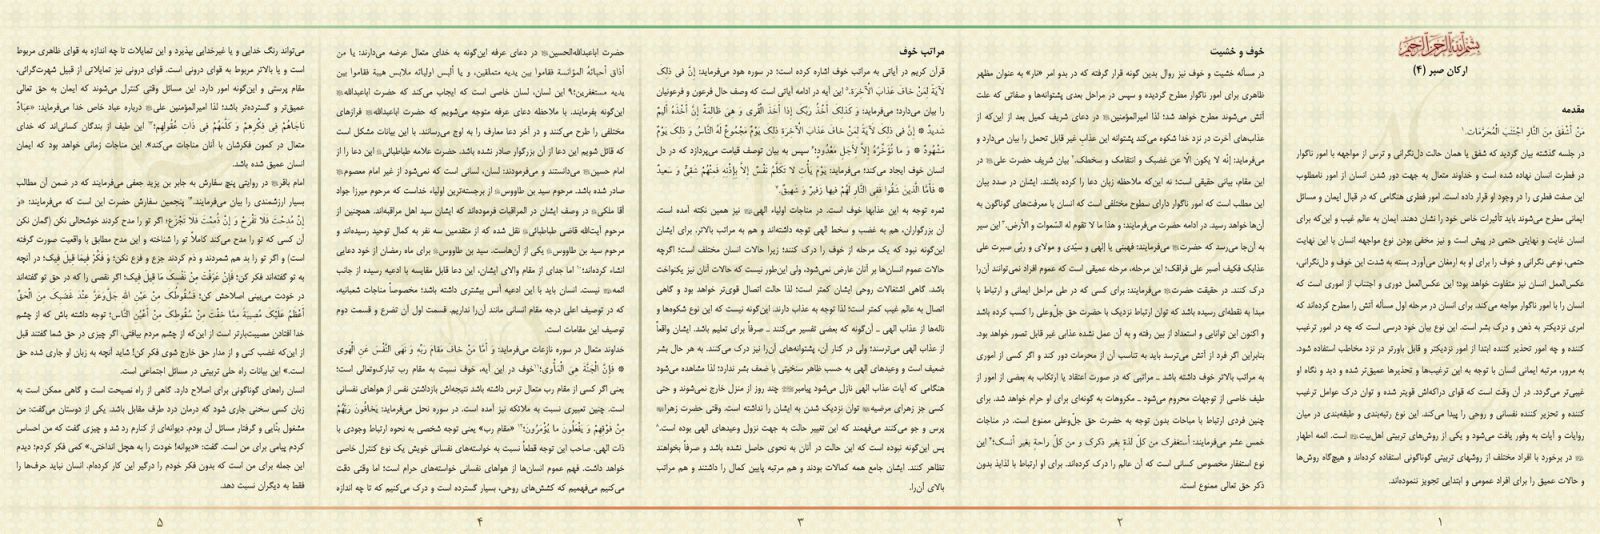 بسم الله الرحمن الرحیم
ارکان صبر (۴)
مقدمه
مَنْ أَشْفَقَ مِنَ النَّارِ اجْتَنَبَ الْمُحَرَّمَاتِ.¹
در جلسه گذشته بیان گردید که شفق یا همان حالت دل‌نگرانی و ترس از مواجهه با امور ناگوار
در فطرت انسان نهاده شده است و خداوند متعال به جهت دور شدن انسان از امور نامطلوب
این صفت فطری را در وجود او قرار داده است. امور فطری هنگامی که در قبال ایمان و مسائل
ایمانی مطرح می‌شوند باید تأثیرات خاص خود را نشان دهند. ایمان به عالم غیب و این‌که برای
انسان غایت و نهایتی حتمی در پیش است و نیز مخفی بودن نوع مواجهه انسان با این نهایت
حتمی، نوعی نگرانی و خوف را برای او به ارمغان می‌آورد. بسته به شدت این خوف و دل‌نگرانی،
عکس‌العمل انسان نیز متفاوت خواهد بود؛ این عکس‌العمل دوری و اجتناب از اموری است که
انسان را با امور ناگوار مواجه می‌کند. برای انسان در مرحله اول مسأله آتش را مطرح کرده‌اند که
امری نزدیکتر به ذهن و درک بشر است. این نوع بیان خود درسی است که چه در امور ترغیب
کننده و چه امور تحذیر کننده ابتدا از امور نزدیکتر و قابل باورتر در نزد مخاطب استفاده شود.
به مرور، مرتبه ایمانی انسان با توجه به این ترغیب‌ها و تحذیرها عمیق‌تر شده و دید و نگاه او
غیبی‌تر می‌گردد. در آن وقت است که قوای دراکه‌اش قویتر شده و توان درک عوامل ترغیب
کننده و تحزیر کننده نفسانی و روحی را پیدا می‌کند. این نوع رتبه‌بندی و طبقه‌بندی در میان
روایات و آیات به وفور یافت می‌شود و یکی از روش‌های تربیتی اهل‌بیت است. ائمه اطهار
در برخورد با افراد مختلف از روشهای تربیتی گوناگونی استفاده کرده‌اند و هیچ‌گاه روش‌ها
و حالات عمیق را برای افراد عمومی و ابتدایی تجویز ننموده‌اند.
۱
خوف و خشیت
در مسأله خشیت و خوف نیز روال بدین گونه قرار گرفته که در بدو امر «نار» به عنوان مظهر
ظاهری برای امور ناگوار مطرح گردیده و سپس در مراحل بعدی پشتوانه‌ها و صفاتی که علت
آتش می‌شوند مطرح خواهد شد؛ لذا امیرالمؤمنین در دعای شریف کمیل بعد از این‌که از
عذاب‌های آخرت در نزد خدا شکوه می‌کند پشتوانه این عذاب غیر قابل تحمل را بیان می‌دارد و
می‌فرماید: إنّه لا یکون الّا عن غضبک و انتقامک و سخطک.² بیان شریف حضرت علی در
این مقام، بیانی حقیقی است؛ نه این‌که ملاحظه زبان دعا را کرده باشند. ایشان در صدد بیان
این مطلب است که امور ناگوار دارای سطوح مختلفی است که انسان با معرفت‌های گوناگون به
آن‌ها خواهد رسید. در ادامه حضرت می‌فرمایند: و هذا ما لا تقوم له السّموات و الأرض.³ این سیر
به آن‌جا می‌رسد که حضرت می‌فرمایند: فهبنی یا إلهی و سیّدی و مولای و ربّی صبرت علی
عذابک فکیف أصبر علی فراقک؛ این مرحله، مرحله عمیقی است که عموم افراد نمی‌توانند آن‌را
درک کنند. در حقیقت حضرت می‌فرمایند: برای کسی که در طی مراحل ایمانی و ارتباط با
مبدا به نقطه‌ای رسیده باشد که توان ارتباط نزدیک با حضرت حق جل‌وعلی را کسب کرده باشد
و اکنون این توانایی و استعداد از بین رفته و به آن عمل نشده عذابی غیر قابل تصور خواهد بود.
بنابراین اگر فرد از آتش می‌ترسد باید به تناسب آن از محرمات دور کند و اگر کسی از اموری
به مراتب بالاتر خوف داشته باشد ـ مراتبی که در صورت اعتقاد یا ارتکاب به بعضی از امور از
طیف خاصی از توجهات محروم می‌شود ـ مکروهات به گونه‌ای برای او حرام خواهد شد. برای
چنین فردی ارتباط با مباحات بدون توجه به حضرت حق جل‌وعلی ممنوع است. در مناجات
خمس عشر می‌فرمایند: أستغفرک من کلّ لذة بغیر ذکرک و من کلّ راحة بغیر أنسک؛⁴ این
نوع استغفار مخصوص کسانی است که آن عالم را درک کرده‌اند. برای او ارتباط با لذایذ بدون
ذکر حق تعالی ممنوع است.
۲
مراتب خوف
قرآن کریم در آیاتی به مراتب خوف اشاره کرده است؛ در سوره هود می‌فرماید: إنَّ فی ذلِکَ
لَآیَةً لِمَنْ خافَ عَذابَ الْآخِرَةِ.⁵ این آیه در ادامه آیاتی است که وصف حال فرعون و فرعونیان
را بیان می‌دارد؛ می‌فرماید: وَ کَذلِکَ أَخْذُ رَبِّکَ إِذا أَخَذَ الْقُرى وَ هِیَ ظالِمَةٌ إِنَّ أَخْذَهُ أَلیمٌ
شَدیدٌ ۞ إِنَّ فی ذلِکَ لَآیَةً لِمَنْ خافَ عَذابَ الْآخِرَةِ ذلِکَ یَوْمٌ مَجْمُوعٌ لَهُ النَّاسُ وَ ذلِکَ یَوْمٌ
مَشْهُودٌ ۞ وَ ما نُؤَخِّرُهُ إِلاَّ لِأَجَلٍ مَعْدُودٍ؛⁶ سپس به بیان توصف قیامت می‌پردازد که در دل
انسان خوف ایجاد می‌کند؛ می‌فرماید: یَوْمَ یَأْتِ لا تَکَلَّمُ نَفْسٌ إِلاَّ بِإِذْنِهِ فَمِنْهُمْ شَقِیٌّ وَ سَعیدٌ
۞ فَأَمَّا الَّذینَ شَقُوا فَفِی النَّارِ لَهُمْ فیها زَفیرٌ وَ شَهیقٌ.⁷
ثمره توجه به این عذابها خوف است. در مناجات اولیاء الهی نیز همین نکته آمده است.
آن بزرگواران، هم به غضب و سخط الهی توجه داشته‌اند و هم به مراتب بالاتر. برای ایشان
این‌گونه نبود که یک مرحله از خوف را درک کنند؛ زیرا حالات انسان مختلف است؛ اگرچه
حالات عموم انسان‌ها بر آنان عارض نمی‌شود، ولی این‌طور نیست که حالات آنان نیز یکنواخت
باشد. گاهی اشتغالات روحی ایشان کمتر است؛ لذا حالت اتصال قوی‌تر خواهد بود و گاهی
اتصال به عالم غیب کمتر است؛ لذا توجه به عذاب دارند. این‌گونه نیست که این نوع شکوه‌ها و
ناله‌ها از عذاب الهی ـ آن‌گونه که بعضی تفسیر می‌کنند ـ صرفاً برای تعلیم باشد. ایشان واقعاً
از عذاب الهی می‌ترسند؛ ولی در کنار آن، پشتوانه‌های آن‌را نیز درک می‌کنند. به هر حال بشر
ضعیف است و وعیدهای الهی به حسب ظاهر سنخیتی با ضعف بشر ندارد؛ لذا مشاهده می‌شود
هنگامی که آیات عذاب الهی نازل می‌شود پیامبر چند روز از منزل خارج نمی‌شوند و حتی
کسی جز زهرای مرضیه توان نزدیک شدن به ایشان را نداشته است. وقتی حضرت زهرا
پرس و جو می‌کنند می‌فهمند که این تغییر حالت به جهت نزول وعیدهای الهی بوده است.⁸
پس این‌گونه نبوده است که این حالت در آنان به نحوی حاصل نشده باشد و صرفاً بخواهند
تظاهر کنند. ایشان جامع همه کمالات بودند و هم مرتبه پایین کمال را داشتند و هم مراتب
بالای آن‌را.
۳
حضرت اباعبدالله‌الحسین در دعای عرفه این‌گونه به خدای متعال عرضه می‌دارند: یا من
أذاق أحبائهُ المؤانسة فقاموا بین یدیه متملقین، و یا ألبس أولیائه ملابس هیبة فقاموا بین
یدیه مستغفرین؛۹ این لسان، لسان خاصی است که ایجاب می‌کند که حضرت اباعبدالله
این‌گونه بفرمایند. با ملاحظه دعای عرفه متوجه می‌شویم که حضرت اباعبدالله فرازهای
مختلفی را طرح می‌کنند و در آخر دعا معارف را به اوج می‌رسانند. با این بیانات مشکل است
که قائل شویم این دعا از آن بزرگوار صادر نشده باشد. حضرت علامه طباطبائی این دعا را از
امام حسین می‌دانستند و می‌فرمودند: لسان، لسانی است که نمی‌شود از غیر امام معصوم
صادر شده باشد. مرحوم سید بن طاووس از برجسته‌ترین اولیاء خداست که مرحوم میرزا جواد
آقا ملکی در وصف ایشان در المراقبات فرموده‌اند که ایشان سید اهل مراقبه‌اند. همچنین از
مرحوم آیت‌الله قاضی طباطبائی نقل شده که از متقدمین سه نفر به کمال توحید رسیده‌اند و
مرحوم سید بن طاووس یکی از آن‌هاست. سید بن طاووس برای ماه رمضان از خود دعایی
انشاء کرده‌اند؛ اما جدای از مقام والای ایشان، این دعا قابل مقایسه با ادعیه رسیده از جانب
ائمه نیست. انسان باید با این ادعیه أنس بیشتری داشته باشد؛ مخصوصاً مناجات شعبانیه،
که در توصیف اعلی درجه مقام انسانی مانند آن‌را نداریم. قسمت اول آن تضرع و قسمت دوم
توصیف این مقامات است.
خداوند متعال در سوره نازعات می‌فرماید: وَ أَمَّا مَنْ خافَ مَقامَ رَبِّهِ وَ نَهَى النَّفْسَ عَنِ الْهَوى
۞ فَإِنَّ الْجَنَّةَ هِیَ الْمَأْوى؛ خوف در این آیه، خوف نسبت به مقام رب تبارک‌وتعالی است؛
یعنی اگر کسی از مقام رب متعال ترس داشته باشد نتیجه‌اش بازداشتن نفس از هواهای نفسانی
است. چنین تعبیری نسبت به ملائکه نیز آمده است. در سوره نحل می‌فرماید: یَخافُونَ رَبَّهُمْ
مِنْ فَوْقِهِمْ وَ یَفْعَلُونَ ما یُؤْمَرُونَ؛ «مقام رب» یعنی توجه شخصی به نحوه ارتباط وجودی با
ذات الهی. صاحب این توجه قطعاً نسبت به خواسته‌های نفسانی خویش یک نوع کنترل خاصی
خواهد داشت. فهم عموم انسان‌ها از هواهای نفسانی خواسته‌های حرام است؛ اما وقتی دقت
می‌کنیم می‌فهمیم که کشش‌های روحی، بسیار گسترده است و درک می‌کنیم که تا چه اندازه
۴
می‌تواند رنگ خدایی و یا غیرخدایی بپذیرد و این تمایلات تا چه اندازه به قوای ظاهری مربوط
است و یا بالاتر مربوط به قوای درونی است. قوای درونی نیز تمایلاتی از قبیل شهرت‌گرائی،
مقام پرستی و این‌گونه امور دارد. این مسائل وقتی کنترل می‌شوند که ایمان به حق تعالی
عمیق‌تر و گسترده‌تر باشد؛ لذا امیرالمؤمنین علی درباره عباد خاص خدا می‌فرماید: «عِبادٌ
نَاجَاهُمْ فِی فِکْرِهِمْ وَ کَلَّمَهُمْ فِی ذَاتِ عُقُولِهِمْ؛ این طیف از بندگان کسانی‌اند که خدای
متعال در کمون فکرشان با آنان مناجات می‌کند». این مناجات زمانی خواهد بود که ایمان
انسان عمیق شده باشد.
امام باقر در روایتی پنج سفارش به جابر بن یزید جعفی می‌فرمایند که در ضمن آن مطالب
بسیار ارزشمندی را بیان می‌فرمایند. پنجمین سفارش حضرت این است که می‌فرمایند: «وَ
إِنْ مُدِحْتَ فَلَا تَفْرَحْ وَ إِنْ ذُمِمْتَ فَلَا تَجْزَعْ؛ اگر تو را مدح کردند خوشحالی نکن (گمان نکن
آن کسی که تو را مدح می‌کند کاملاً تو را شناخته و این مدح مطابق با واقعیت صورت گرفته
است) و اگر تو را بد هم شمردند و ذم کردند جزع و فزع نکن؛ وَ فَکِّرْ فِیمَا قِیلَ فِیکَ؛ در آنچه
به تو گفته‌اند فکر کن؛ فَإِنْ عَرَفْتَ مِنْ نَفْسِکَ مَا قِیلَ فِیکَ؛ اگر نقصی را که در حق تو گفته‌اند
در خودت می‌بینی اصلاحش کن؛ فَسُقُوطُکَ مِنْ عَیْنِ اللهِ جَلَّ‌وَعَزَّ عِنْدَ غَضَبِکَ مِنَ الْحَقِّ
أَعْظَمُ عَلَیْکَ مُصِیبَةً مِمَّا خِفْتَ مِنْ سُقُوطِکَ مِنْ أَعْیُنِ النَّاسِ؛ توجه داشته باش که از چشم
خدا افتادن مصیبت‌بارتر است از این‌که از چشم مردم بیافتی. اگر چیزی در حق شما گفتند قبل
از این‌که غضب کنی و از مدار حق خارج شوی فکر کن! شاید آنچه به زبان او جاری شده حق
است.» این بیانات راه حلی تربیتی در مسائل اجتماعی است.
انسان راه‌های گوناگونی برای اصلاح دارد. گاهی از راه نصیحت است و گاهی ممکن است به
زبان کسی سخنی جاری شود که درمان درد طرف مقابل باشد. یکی از دوستان می‌گفت: من
مشغول بنّایی و گرفتار مسائل آن بودم. دیوانه‌ای از کنارم رد شد و چیزی گفت که من احساس
کردم پیامی برای من است. گفت: «دیوانه! خودت را به هچل انداختی.» کمی فکر کردم؛ دیدم
این جمله برای من است که بدون فکر خودم را درگیر این کار کرده‌ام. انسان نباید حرف‌ها را
فقط به دیگران نسبت دهد.
۵